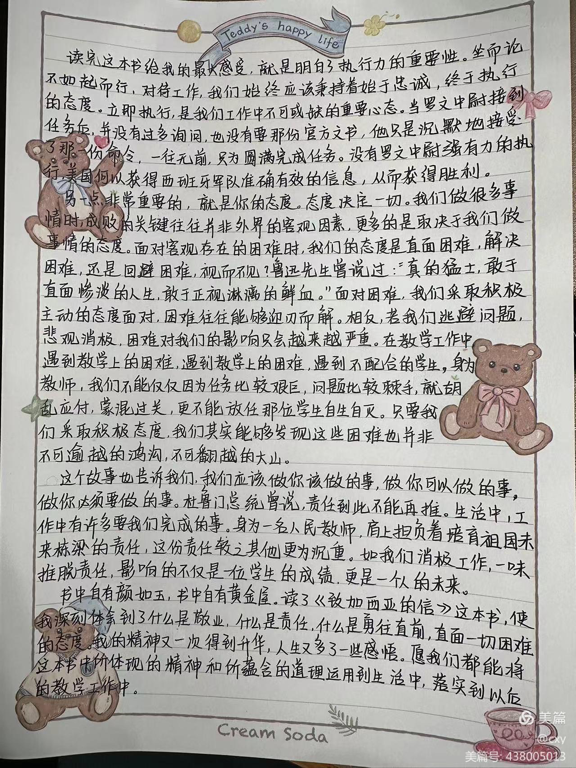 Teddy's happy life
读完这本书给我的最大感应，就是明白了执行力的重要性。坐而论
不如起而行，对待工作，我们始终应该秉持着始于忠诚，终于执行
的态度。立即执行，是我们工作中不可或缺的重要心态。当罗文中尉接到
任务后，并没有过多询问，也没有要那份官方文书，他只是沉默地接受
了那一份命令，一往无前，只为圆满完成任务。没有罗文中尉强有力的执
行，美国何以获得西班牙军队准确有效的信息，从而获得胜利。
另一点非常重要的，就是你的态度。态度决定一切。我们做很多事
情时成败的关键往往并非外界的客观因素，更多的是取决于我们做
事情的态度。面对客观存在的困难时，我们的态度是直面困难，解决
困难，还是回避困难，视而不见？鲁迅先生曾说过："真的猛士，敢于
直面惨淡的人生，敢于正视淋漓的鲜血。"面对困难，我们采取积极
主动的态度面对，困难往往能够迎刃而解。相反，若我们逃避问题，
悲观消极，困难对我们的影响只会越来越严重。在教学工作中
遇到教学上的困难，遇到教学上的困难，遇到不配合的学生，身为
教师，我们不能仅仅因为任务比较艰巨，问题比较棘手，就胡
乱应付，蒙混过关，更不能放任那位学生自生自灭。只要我
们采取积极态度，我们其实能够发现这些困难也并非
不可逾越的鸿沟，不可翻越的大山。
这个故事也告诉我们，我们应该做你该做的事，做你可以做的事，
做你必须要做的事。杜鲁门总统曾说，责任到此不能再推。生活中，工
作中有许多要我们完成的事。身为一名人民教师，肩上担负着培育祖国未
来栋梁的责任，这份责任较之其他更为沉重。如我们消极工作，一味
推脱责任，影响的不仅是一位学生的成绩，更是一个人的未来。
书中自有颜如玉，书中自有黄金屋。读了《致加西亚的信》这本书，使
我深刻体会到了什么是敬业，什么是责任，什么是勇往直前，直面一切困难
的态度。我的精神又一次得到升华，人生又多了一些感悟。愿我们都能将
这本书中所体现的精神和所蕴含的道理运用到生活中，落实到以后
的教学工作中。
Cream Soda
美篇
@cxy
美篇号: 438005013